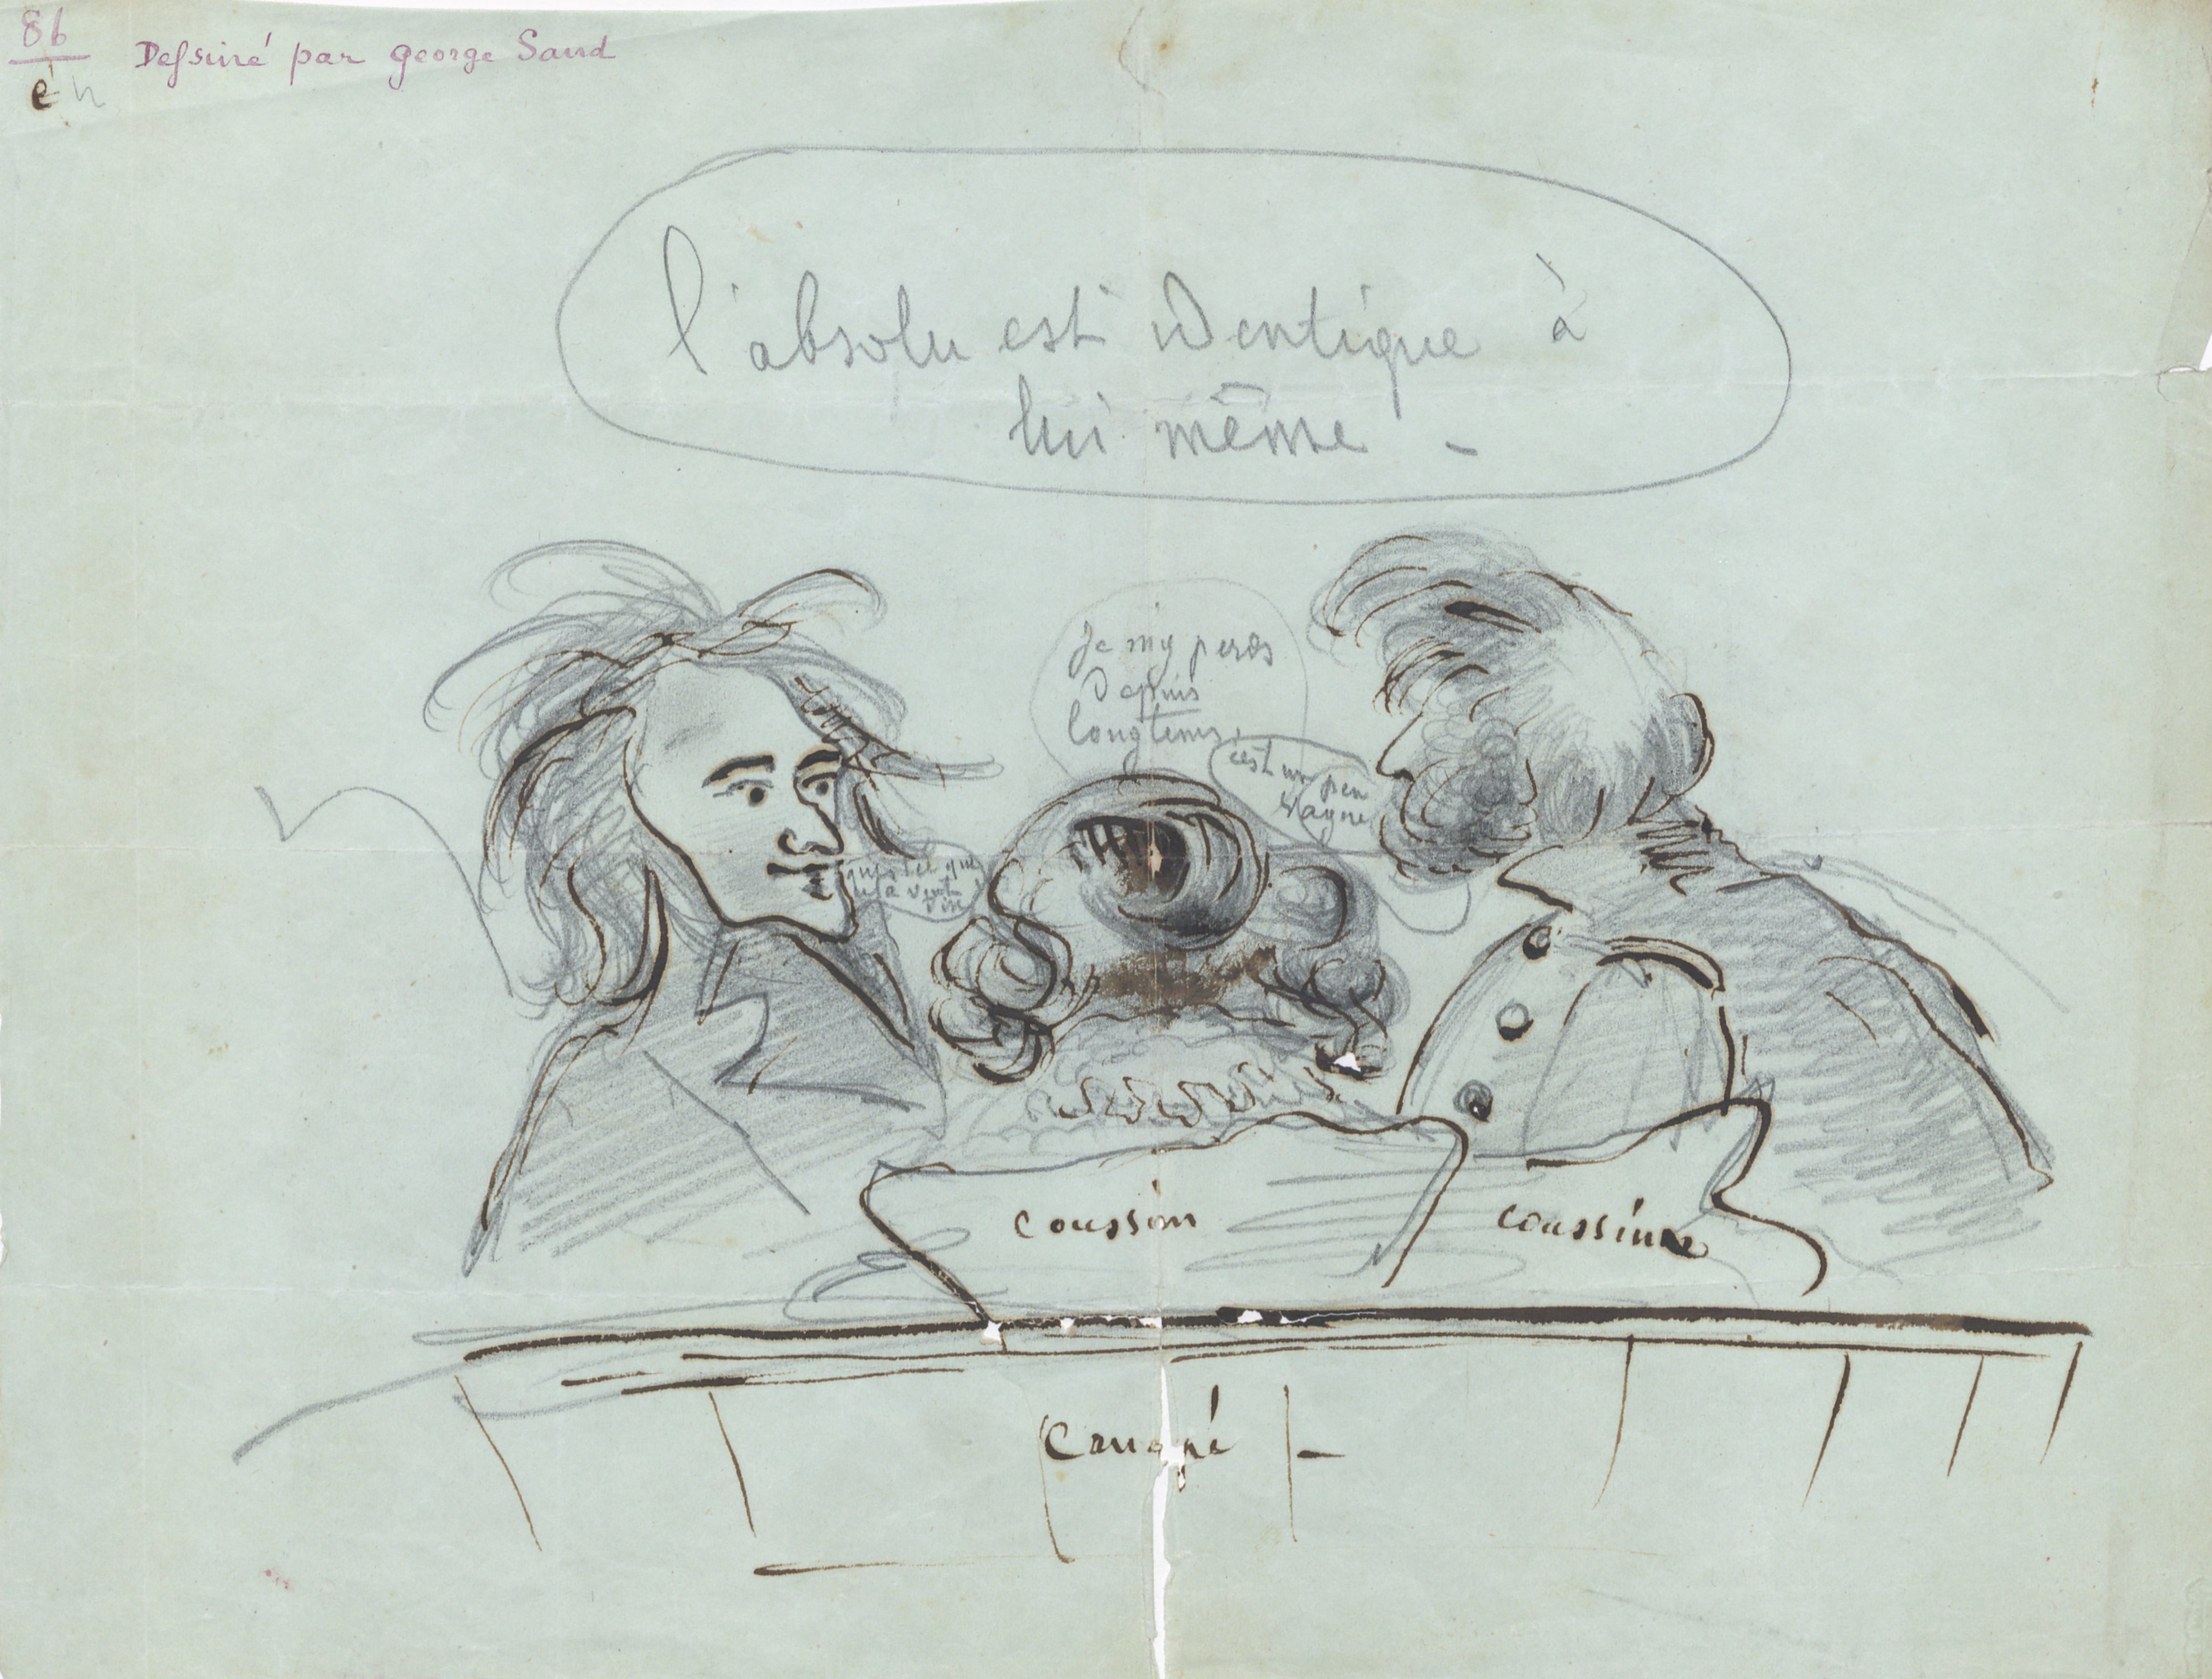 86
é
Dessiné par george Sand
l'absolu est identique à
lui même -
Je my perds
Depuis
longtems.
c'est un peu
vague
qu'est ce que
ça veut
dire
coussin
coussin
Canapé -